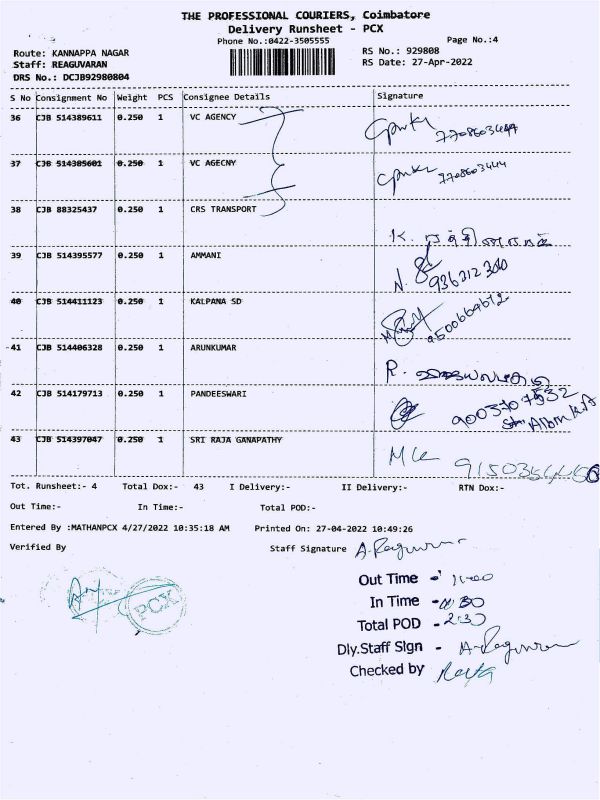 THE PROFESSIONAL COURIERS, Coimbatore
Delivery Runsheet - PCX
Phone No.:0422-3505555
Page No.:4
Route: KANNAPPA NAGAR
RS No.: 929808
Staff: REAGUVARAN
RS Date: 27-Apr-2022
DRS No.: DCJB92980804
S No Consignment No Weight PCS Consignee Details Signature
36 CJB 514389611 0.250 1 VC AGENCY
7708603444
37 CJB 514385601 0.250 1 VC AGECNY
7708603444
38 CJB 88325437 0.250 1 CRS TRANSPORT
K.
39 CJB 514395577 0.250 1 AMMANI
N.
40 CJB 514411123 0.250 1 KALPANA SD
9500669672
41 CJB 514406328 0.250 1 ARUNKUMAR
R.
42 CJB 514179713 0.250 1 PANDEESWARI
9003707532
43 CJB 514397047 0.250 1 SRI RAJA GANAPATHY
Tot. Runsheet:- 4 Total Dox:- 43 I Delivery:- II Delivery:- RTN Dox:-
Out Time:- In Time:- Total POD:-
Entered By :MATHANPCX 4/27/2022 10:35:18 AM Printed On: 27-04-2022 10:49:26
Verified By Staff Signature
PCX
Out Time - 11:00
In Time -
Total POD - 2:30
Dly.Staff Sign -
Checked by